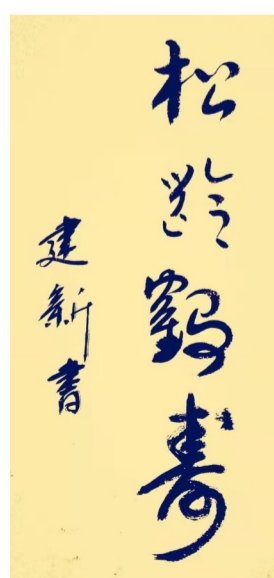 松龄鹤寿
建新書